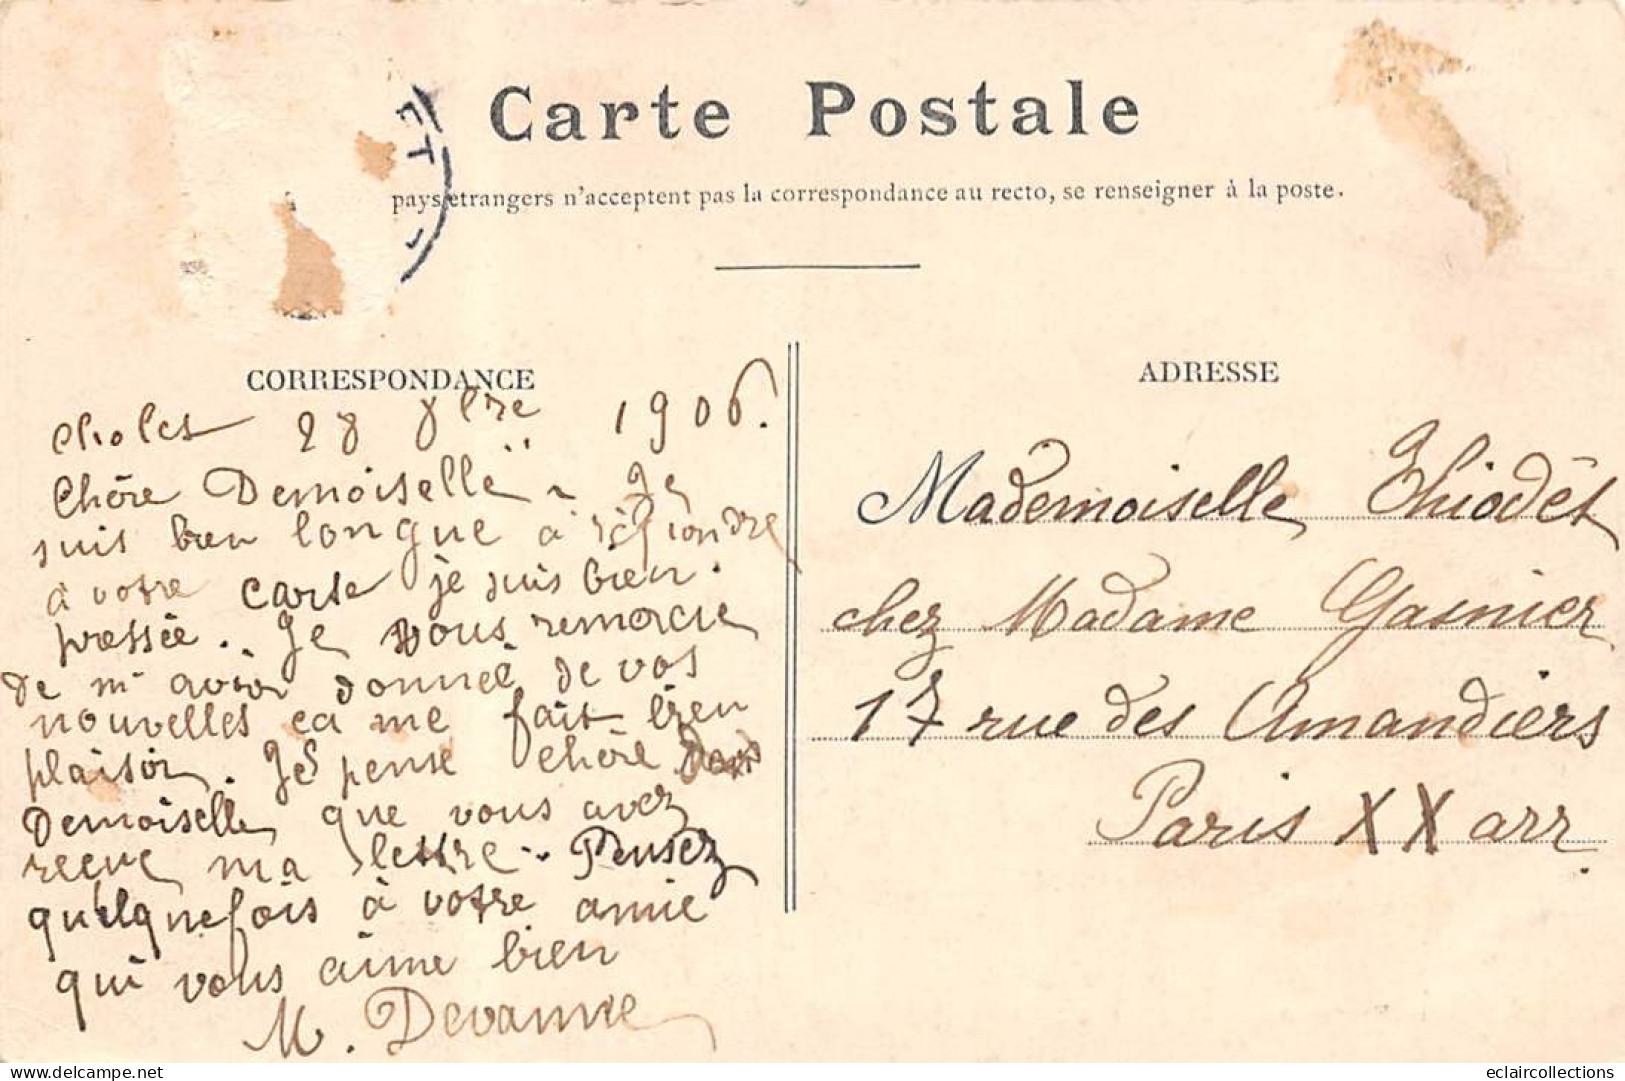 Carte Postale
pays étrangers n'acceptent pas la correspondance au recto, se renseigner à la poste.
CORRESPONDANCE
Cholet 28 1906.
Chère Demoiselle Je
suis bien longue à répondre
à votre carte je suis bien
pressée. Je vous remercie
de m'avoir donnée de vos
nouvelles ça me fait bien
plaisir. Je pense chère
Demoiselle que vous avez
reçue ma lettre. Pensez
quelquefois à votre amie
qui vous aime bien
M. Devanne
ADRESSE
Mademoiselle Thiodèt
chez Madame Gasnier
17 rue des Amandiers
Paris XX arr.
eclaircollections